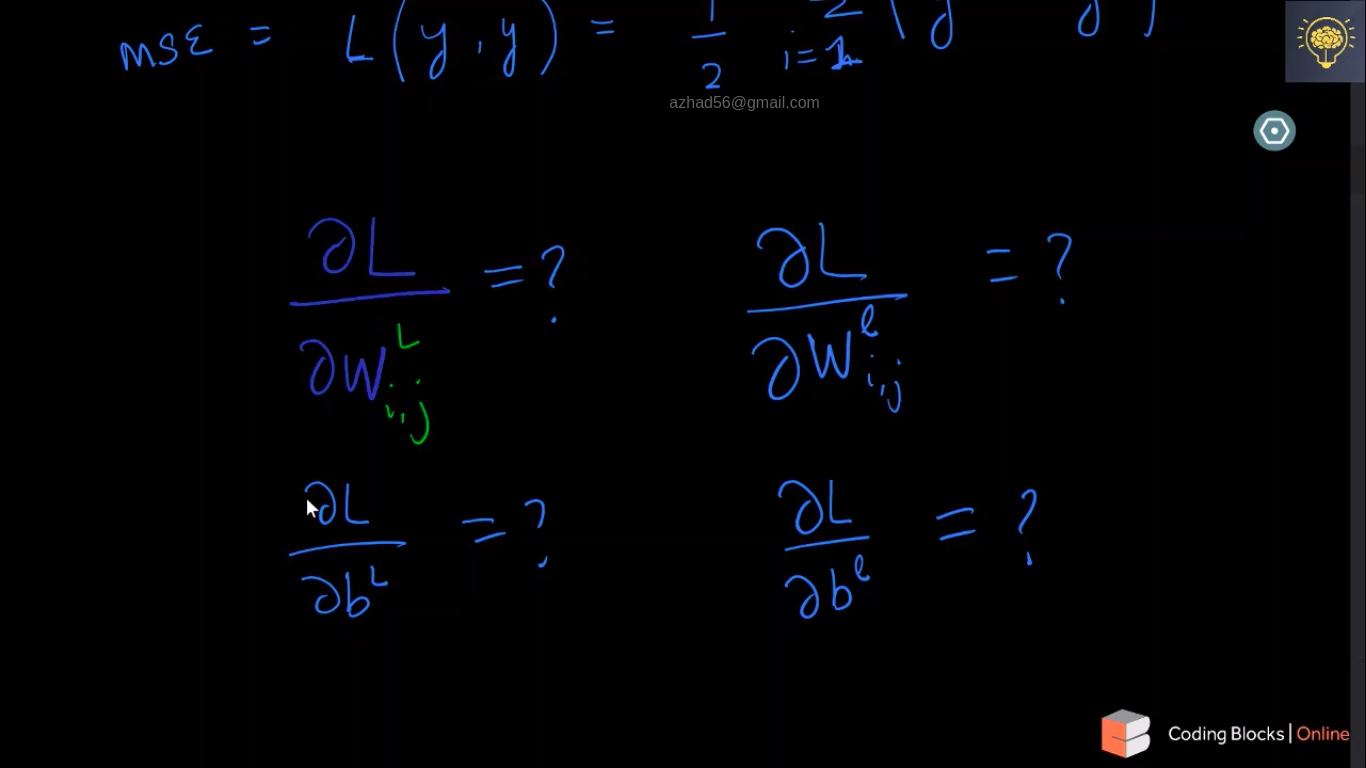 MSE = L(y, y) = 1/2 Σ i=1 (y y)
azhad56@gmail.com
∂L/∂W^L_{i,j} = ? ∂L/∂W^l_{i,j} = ?
∂L/∂b^L = ? ∂L/∂b^l = ?
Coding Blocks | Online